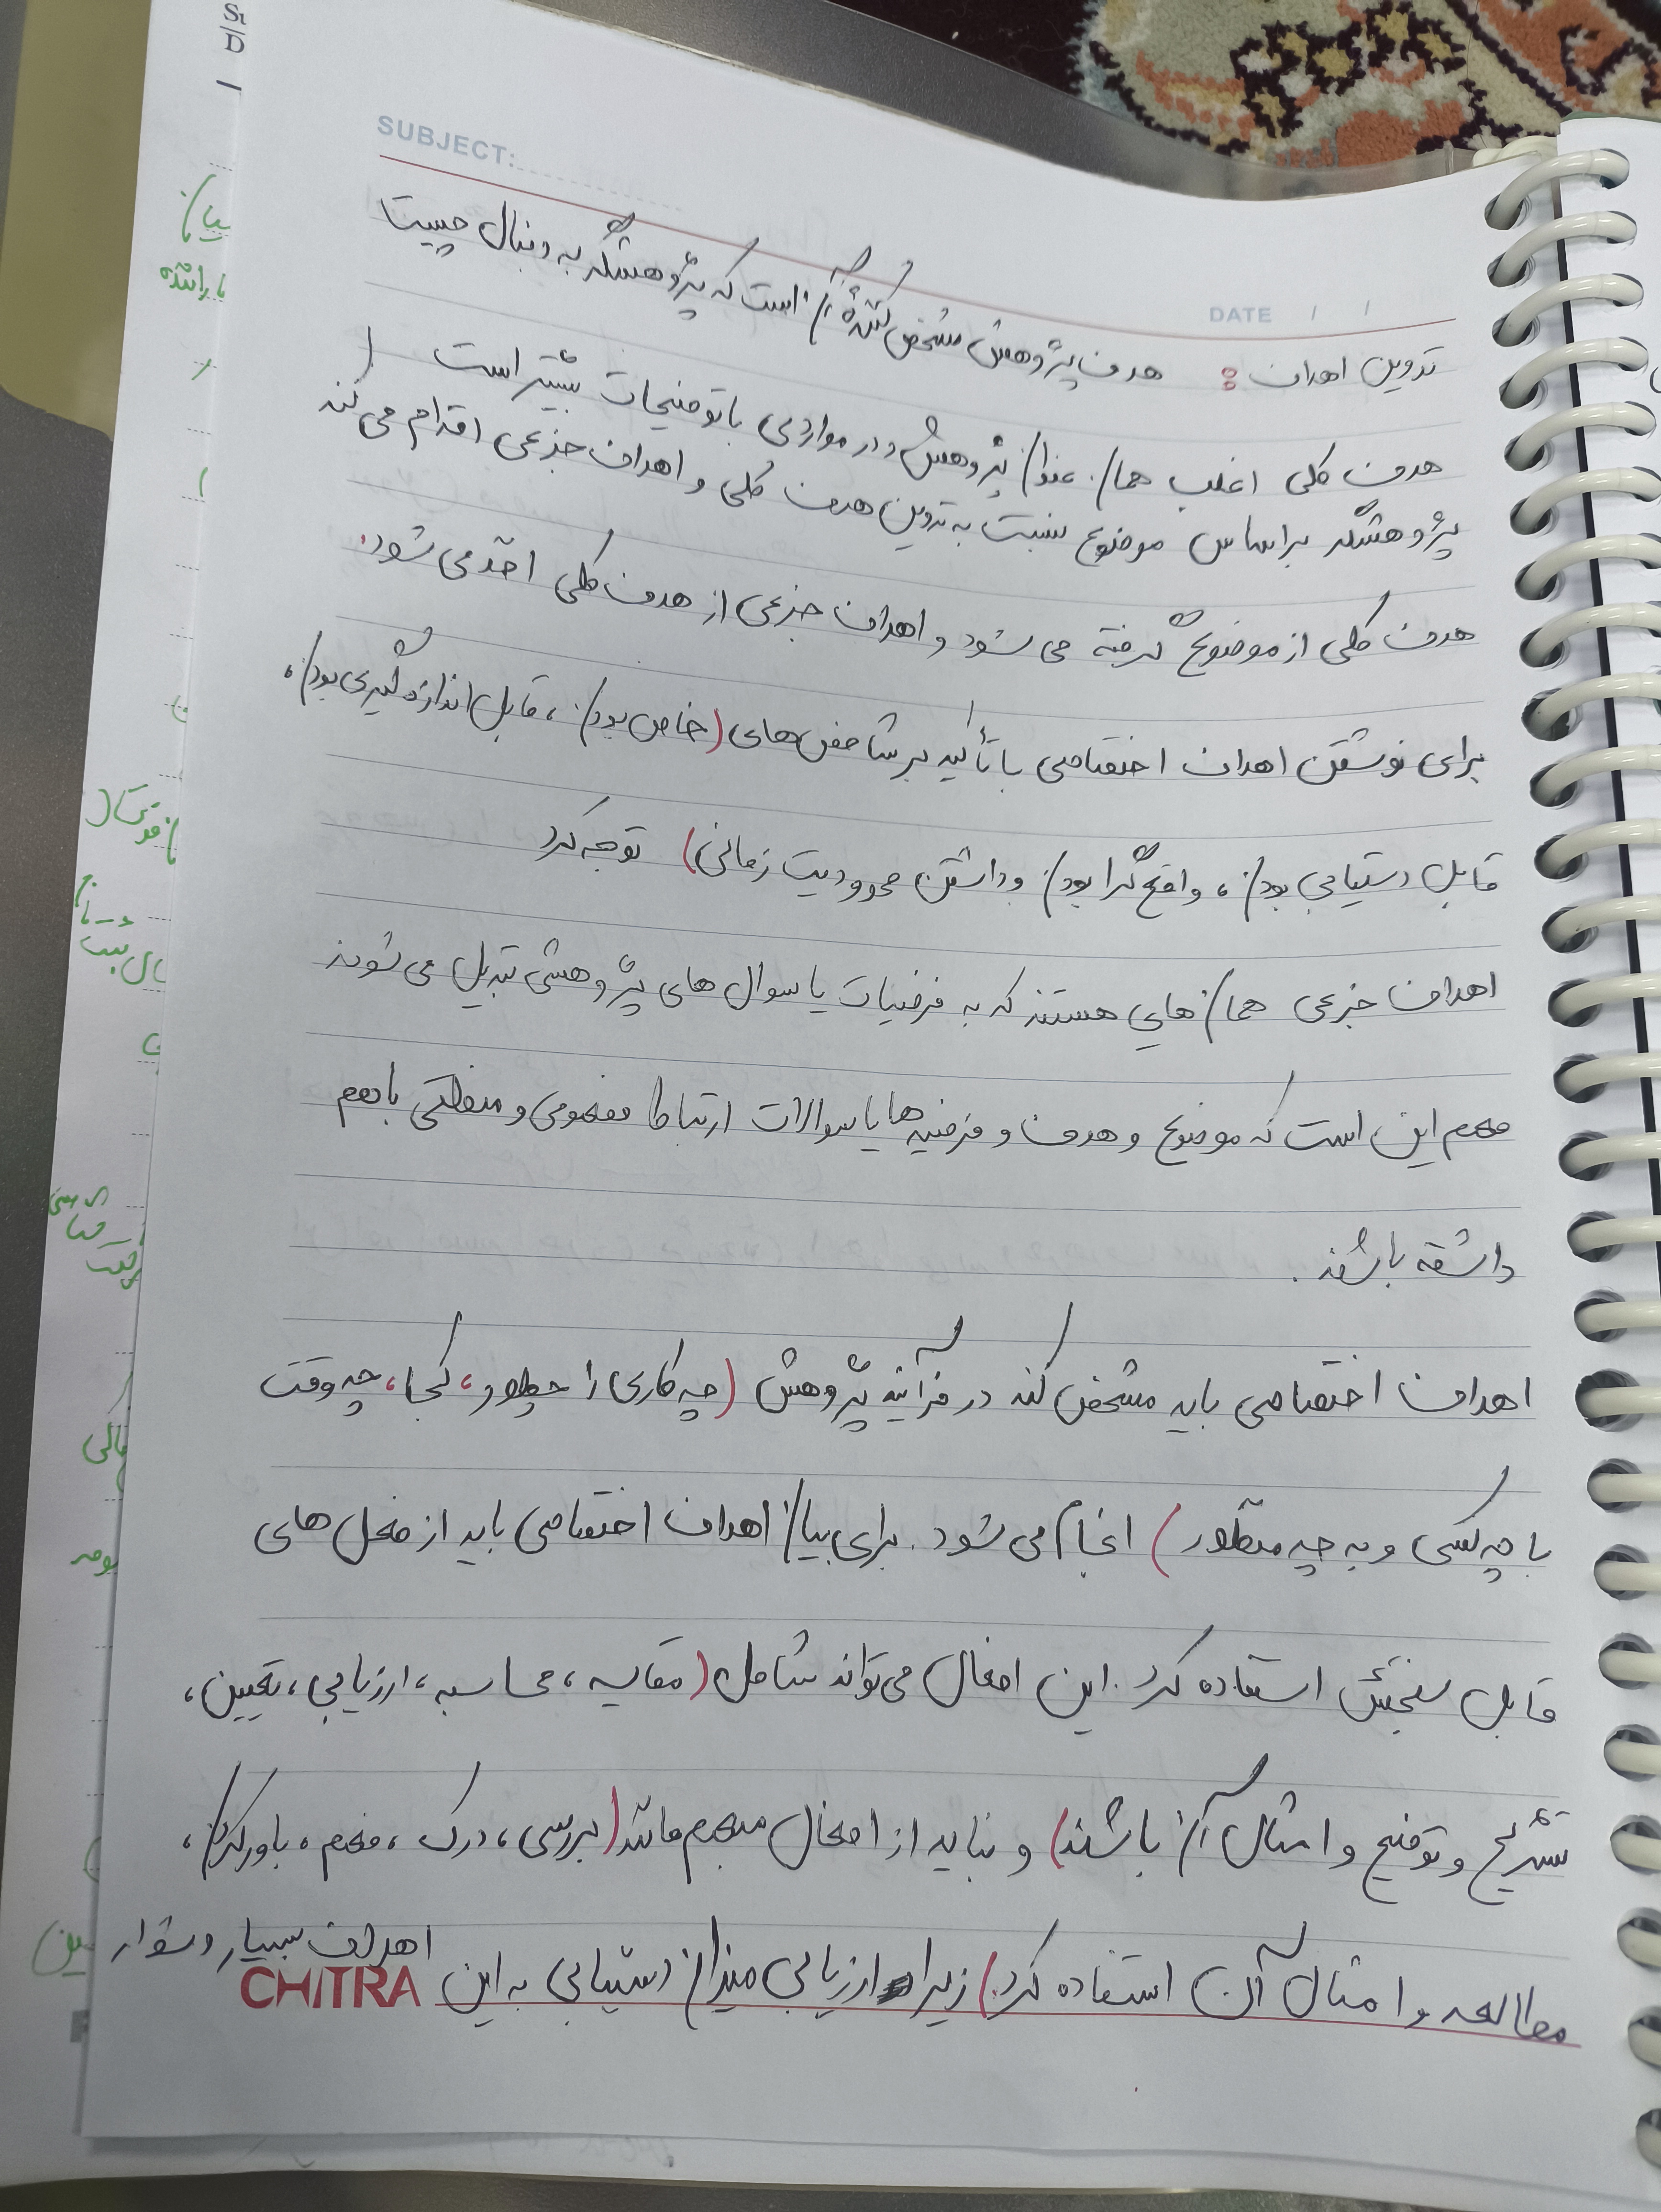 SUBJECT:
DATE / /
تدوین اهداف : هدف پژوهش مشخص کننده آن است که پژوهشگر به دنبال چیست
هدف کلی اغلب همان عنوان پژوهش و در مواردی با توضیحات بیشتر است
پژوهشگر براساس موضوع نسبت به تدوین هدف کلی و اهداف جزعی اقدام می کند
هدف کلی از موضوع گرفته می شود و اهداف جزعی از هدف کلی اخذ می شود.
برای نوشتن اهداف اختصاصی با تأکید بر شاخص های (خاص بودن ، قابل اندازه گیری بودن ،
قابل دستیابی بودن ، واقع گرا بودن و داشتن محدودیت زمانی) توجه کرد
اهداف جزعی همان هایی هستند که به فرضیات یا سوال های پژوهشی تبدیل می شوند
مهم این است که موضوع و هدف و فرضیه ها یا سوالات ارتباط مفهومی و منطقی با هم
داشته باشند .
اهداف اختصاصی باید مشخص کند در فرآیند پژوهش (چه کاری را چطور ، کجا ، چه وقت
با چه کسی و به چه منظور) انجام می شود . برای بیان اهداف اختصاصی باید از فعل های
قابل سنجش استفاده کرد . این افعال می تواند شامل (مقایسه ، محاسبه ، ارزیابی ، تعیین ،
تشریح و توضیح و امثال آن باشند) و نباید از افعال مبهم مانند (بررسی ، درک ، فهم ، باور کردن ،
مطالعه و امثال آن استفاده کرد) زیرا ارزیابی میزان دستیابی به این اهداف بسیار دشوار
CHITRA